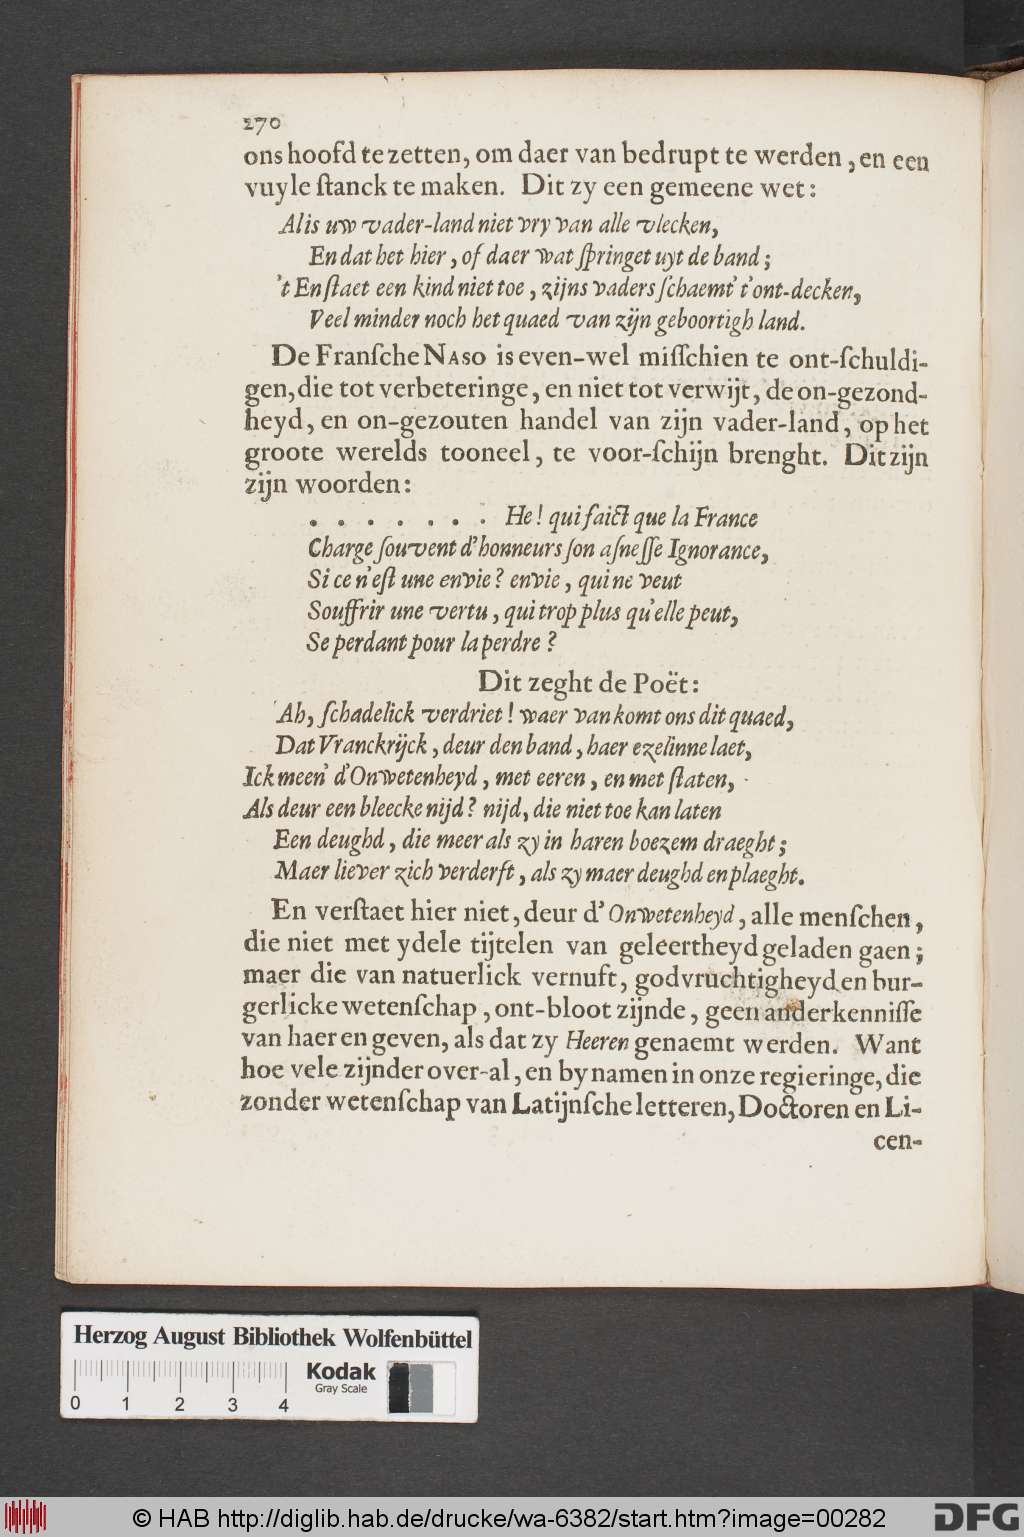 270
ons hoofd te zetten, om daer van bedrupt te werden, en een
vuyle ſtanck te maken. Dit zy een gemeene wet:
Al is uw vader-land niet vry van alle vlecken,
En dat het hier, of daer wat ſpringet uyt de band;
't En ſtaet een kind niet toe, zijns vaders ſchaemt' t'ont-decken,
Veel minder noch het quaed van zijn geboortigh land.
De Franſche NASO is even-wel miſſchien te ont-ſchuldi-
gen, die tot verbeteringe, en niet tot verwijt, de on-gezond-
heyd, en on-gezouten handel van zijn vader-land, op het
groote werelds tooneel, te voor-ſchijn brenght. Dit zijn
zijn woorden:
. . . . . . . He! qui faict que la France
Charge ſouvent d'honneurs ſon aſneſſe Ignorance,
Si ce n'eſt une envie? envie, qui ne veut
Souffrir une vertu, qui trop plus qu'elle peut,
Se perdant pour la perdre?
Dit zeght de Poët:
Ah, ſchadelick verdriet! waer van komt ons dit quaed,
Dat Vranckrijck, deur den band, haer ezelinne laet,
Ick meen' d'Onwetenheyd, met eeren, en met ſtaten,
Als deur een bleecke nijd? nijd, die niet toe kan laten
Een deughd, die meer als zy in haren boezem draeght;
Maer liever zich verderft, als zy maer deughd en plaeght.
En verſtaet hier niet, deur d'Onwetenheyd, alle menſchen,
die niet met ydele tijtelen van geleertheyd geladen gaen;
maer die van natuerlick vernuft, godvruchtigheyd en bur-
gerlicke wetenſchap, ont-bloot zijnde, geen ander kenniſſe
van haer en geven, als dat zy Heeren genaemt werden. Want
hoe vele zijnder over-al, en by namen in onze regieringe, die
zonder wetenſchap van Latijnſche letteren, Doctoren en Li-
cen-
Herzog August Bibliothek Wolfenbüttel
Kodak
Gray Scale
0 1 2 3 4
© HAB http://diglib.hab.de/drucke/wa-6382/start.htm?image=00282
DFG